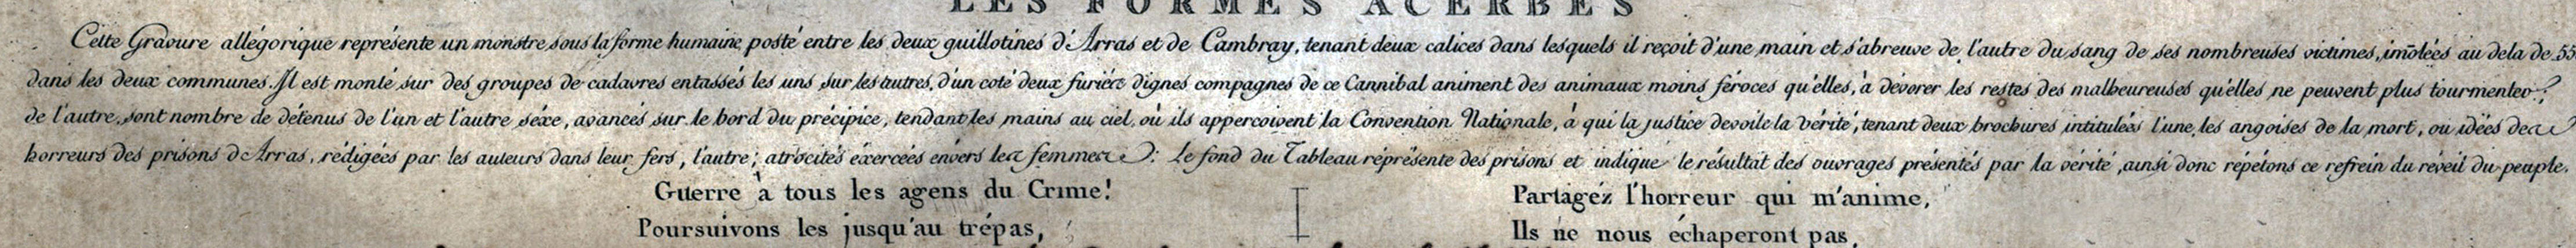 LES FORMES ACERBES
Cette Gravure allégorique représente un monstre sous la forme humaine, posté entre les deux guillotines d'Arras et de Cambray, tenant deux calices dans lesquels il reçoit d'une main et s'abreuve de l'autre du sang de ses nombreuses victimes, imolées au dela de 55
dans les deux communes. Il est monté sur des groupes de cadavres entassés les uns sur les autres, d'un coté deux furies dignes compagnes de ce Cannibal animent des animaux moins féroces qu'elles, à dévorer les restes des malheureuses qu'elles ne peuvent plus tourmenter;
de l'autre, sont nombre de détenus de l'un et l'autre séxe, avancés sur le bord du précipice, tendant les mains au ciel, où ils appercoivent la Convention Nationale, à qui la justice devoile la vérité, tenant deux brochures intitulées l'une, les angoises de la mort, ou idées des
horreurs des prisons d'Arras, rédigées par les auteurs dans leur fers, l'autre; atrocités éxercées envers les femmes: Le fond du Tableau répresente des prisons et indique le résultat des ouvrages présentés par la vérité, ainsi donc répétons ce refrein du réveil du peuple.
Guerre à tous les agens du Crime!
Poursuivons les jusqu'au trépas,
Partagéz l'horreur qui m'anime,
Ils ne nous échaperont pas.